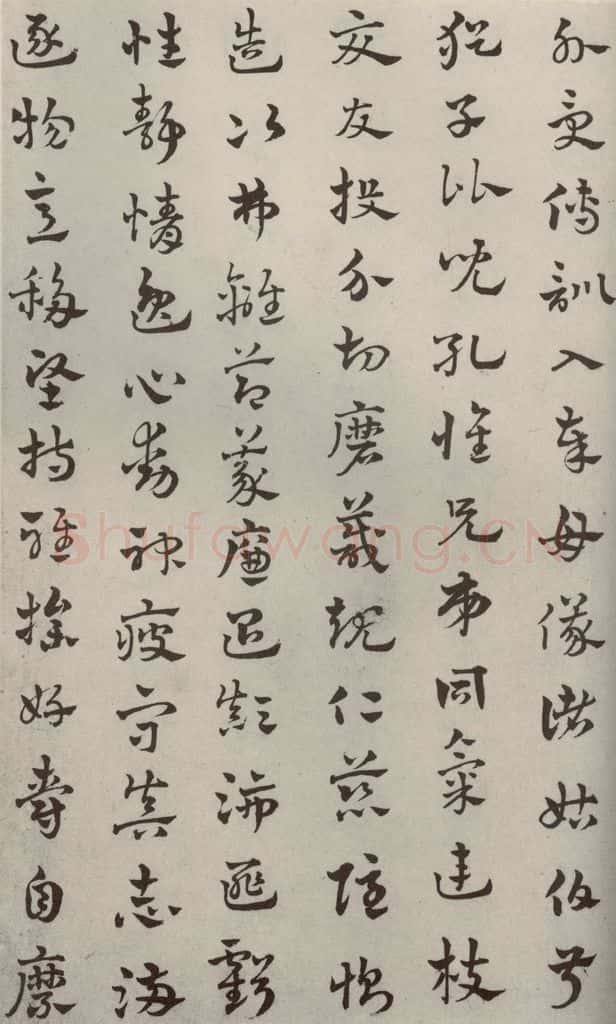 外受傅訓入奉母儀諸姑伯叔
猶子比兒孔懷兄弟同氣連枝
交友投分切磨箴規仁慈隱惻
造次弗離節義廉退顛沛匪虧
性靜情逸心動神疲守真志滿
逐物意移堅持雅操好爵自縻
Shufawang.CN